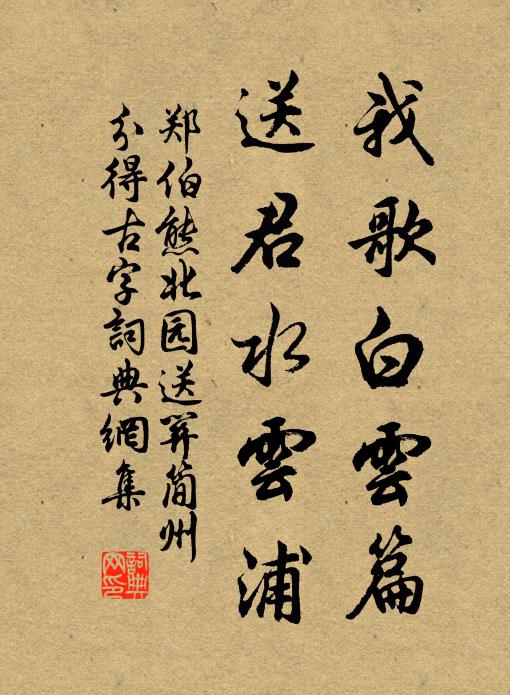 我歌白雲篇
送君水雲浦
郑伯熊北园送羿简州
分得古字詞典網集
詞典网印